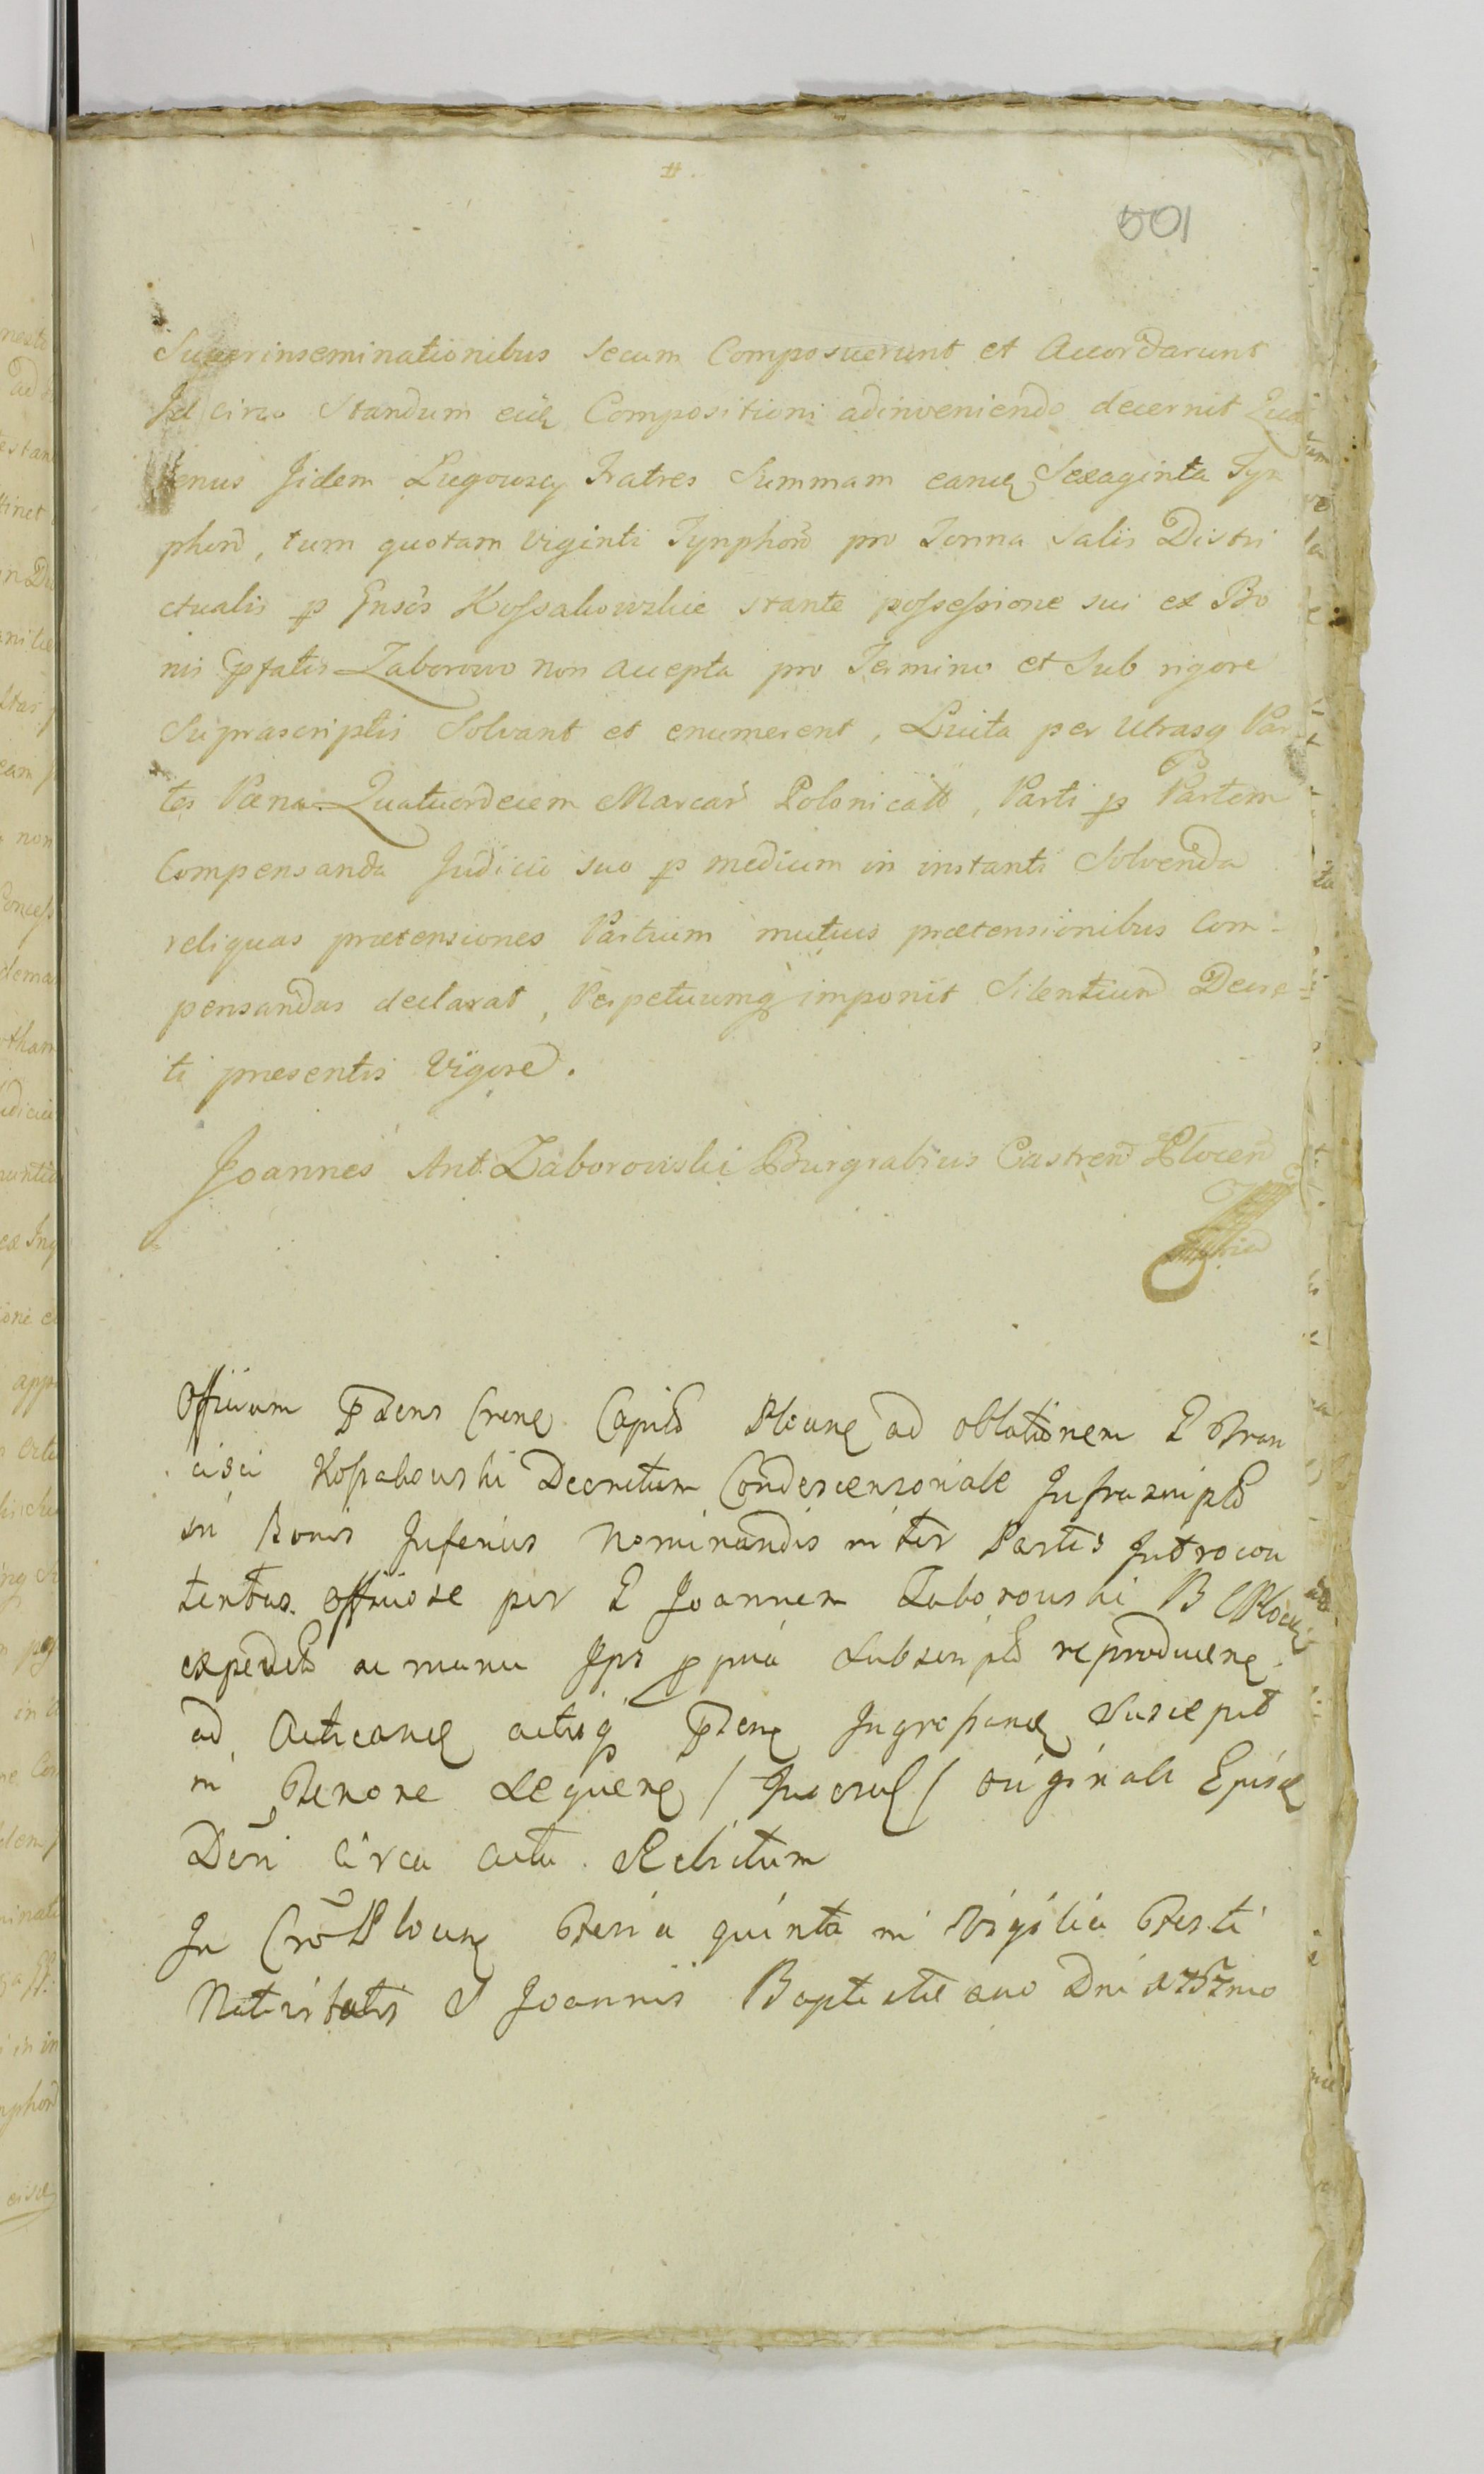 501
Superinseminationibus secum Composuerunt et Accordarunt
Id circo Standum eidē Compositioni adinveniendo decernit Qua
tenus Jidem Lugowscy Fratres Summam eand Sexaginta Tyn
phord, tum quotam Viginti Tynphord pro Tonna Salis Distri
ctualis p Gnsos Kossakowskie stante possessione sui ex Bo
nis pfatis Zaborowo non accepta pro Termino et Sub rigore
Suprascriptis Solvant et enumerent, Luita per Utrasq Par
tes Paena Quatuordecim Marcar Polonicalt, Parti p Partem
Compensanda Judicio suo p medium in instanti Solvenda
reliquas praetensiones Partium mutuis praetensionibus Com-
pensandas declarat, Perpetuumq imponit Silentium Decre=
ti praesentis Vigore.
Joannes Ant. Zaborowski Burgrabius Castren Plocen
Officium pdens Crene Capitl Plocens ad oblationem G Fran
cisci Kossakowski Decretum Condescensoriale Infrascriptl
in Bonis Inferius Nominandis inter Partes Introcon
tentas officiose per G Joannem Zaborowski B C Plocen
expeditl ac manu Ips ppria Subscriptl reproducens
ad Acticand actisq pdens Ingrossand Suscepit
in Tenore Sequens / Ingross / originali Episd
Dëri circa acta Relictum
In Crō Plocens Feria quinta in Vigilia Festi
Nativitatis S Joannis Baptistae ano Dni 1757mo